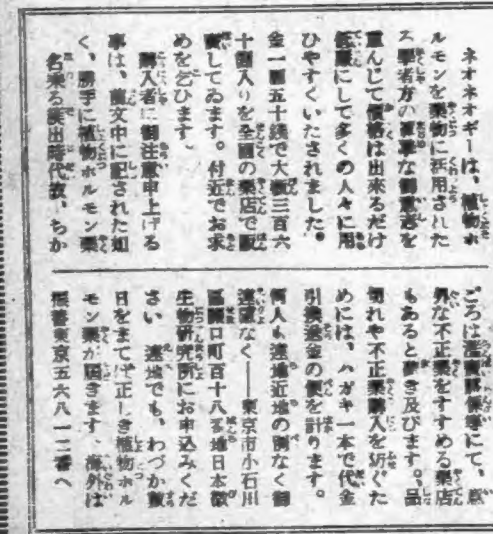 ネオネオギーは、植物ホ
ルモンを薬物に活用された
る學者方の尊い御意志を
重んじて價格は出來るだけ
低廉にして多くの人々に用
ひやすくいたされました。
金一圓五十錢で大粒三百六
十個入りを全國の薬店で販
賣してゐます。付近でお求
めを乞ひます。
購入者に御注意申上げる
事は、前文中に記された如
く、勝手に植物ホルモン薬
名乘る濫出時代故、ちか
ごろは
外な不正薬をすすめる薬店
もあると聞き及びます。品
切れや不正薬購入を防ぐた
めには、ハガキ一本で代金
引換送金の便を計ります。
何人も遠地近地の別なく御
遠慮なく――東京市小石川
區關口町百十八番地日本微
生物研究所にお申込みくだ
さい 遠地でも、わづか數
日をまてば正しき植物ホル
モン薬が届きます、海外は
振替東京五六八一二番へ